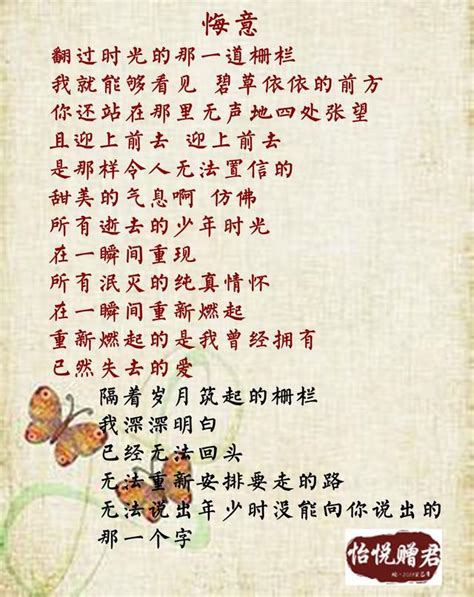 悔意
翻过时光的那一道栅栏
我就能够看见 碧草依依的前方
你还站在那里无声地四处张望
且迎上前去 迎上前去
是那样令人无法置信的
甜美的气息啊 仿佛
所有逝去的少年时光
在一瞬间重现
所有泯灭的纯真情怀
在一瞬间重新燃起
重新燃起的是我曾经拥有
已然失去的爱
隔着岁月筑起的栅栏
我深深明白
已经无法回头
无法重新安排要走的路
无法说出年少时没能向你说出的
那一个字
怡悦赠君